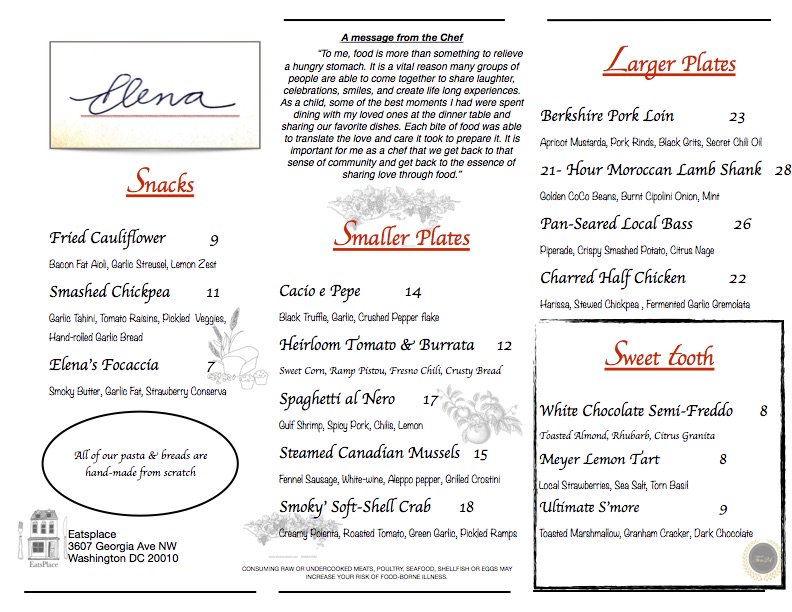 Elena
Snacks
Fried Cauliflower 9
Bacon Fat Aioli, Garlic Streusel, Lemon Zest
Smashed Chickpea 11
Garlic Tahini, Tomato Raisins, Pickled Veggies,
Hand-rolled Garlic Bread
Elena's Focaccia 7
Smoky Butter, Garlic Fat, Strawberry Conserva
All of our pasta & breads are
hand-made from scratch
EatsPlace
Eatsplace
3607 Georgia Ave NW
Washington DC 20010
A message from the Chef
"To me, food is more than something to relieve
a hungry stomach. It is a vital reason many groups of
people are able to come together to share laughter,
celebrations, smiles, and create life long experiences.
As a child, some of the best moments I had were spent
dining with my loved ones at the dinner table and
sharing our favorite dishes. Each bite of food was able
to translate the love and care it took to prepare it. It is
important for me as a chef that we get back to that
sense of community and get back to the essence of
sharing love through food."
Smaller Plates
Cacio e Pepe 14
Black Truffle, Garlic, Crushed Pepper flake
Heirloom Tomato & Burrata 12
Sweet Corn, Ramp Pistou, Fresno Chili, Crusty Bread
Spaghetti al Nero 17
Gulf Shrimp, Spicy Pork, Chilis, Lemon
Steamed Canadian Mussels 15
Fennel Sausage, White-wine, Aleppo pepper, Grilled Crostini
Smoky' Soft-Shell Crab 18
Creamy Polenta, Roasted Tomato, Green Garlic, Pickled Ramps
CONSUMING RAW OR UNDERCOOKED MEATS, POULTRY, SEAFOOD, SHELLFISH OR EGGS MAY
INCREASE YOUR RISK OF FOOD-BORNE ILLNESS.
Larger Plates
Berkshire Pork Loin 23
Apricot Mustarda, Pork Rinds, Black Grits, Secret Chili Oil
21- Hour Moroccan Lamb Shank 28
Golden CoCo Beans, Burnt Cipolini Onion, Mint
Pan-Seared Local Bass 26
Piperade, Crispy Smashed Potato, Citrus Nage
Charred Half Chicken 22
Harissa, Stewed Chickpea , Fermented Garlic Gremolata
Sweet tooth
White Chocolate Semi-Freddo 8
Toasted Almond, Rhubarb, Citrus Granita
Meyer Lemon Tart 8
Local Strawberries, Sea Salt, Torn Basil
Ultimate S'more 9
Toasted Marshmallow, Granham Cracker, Dark Chocolate